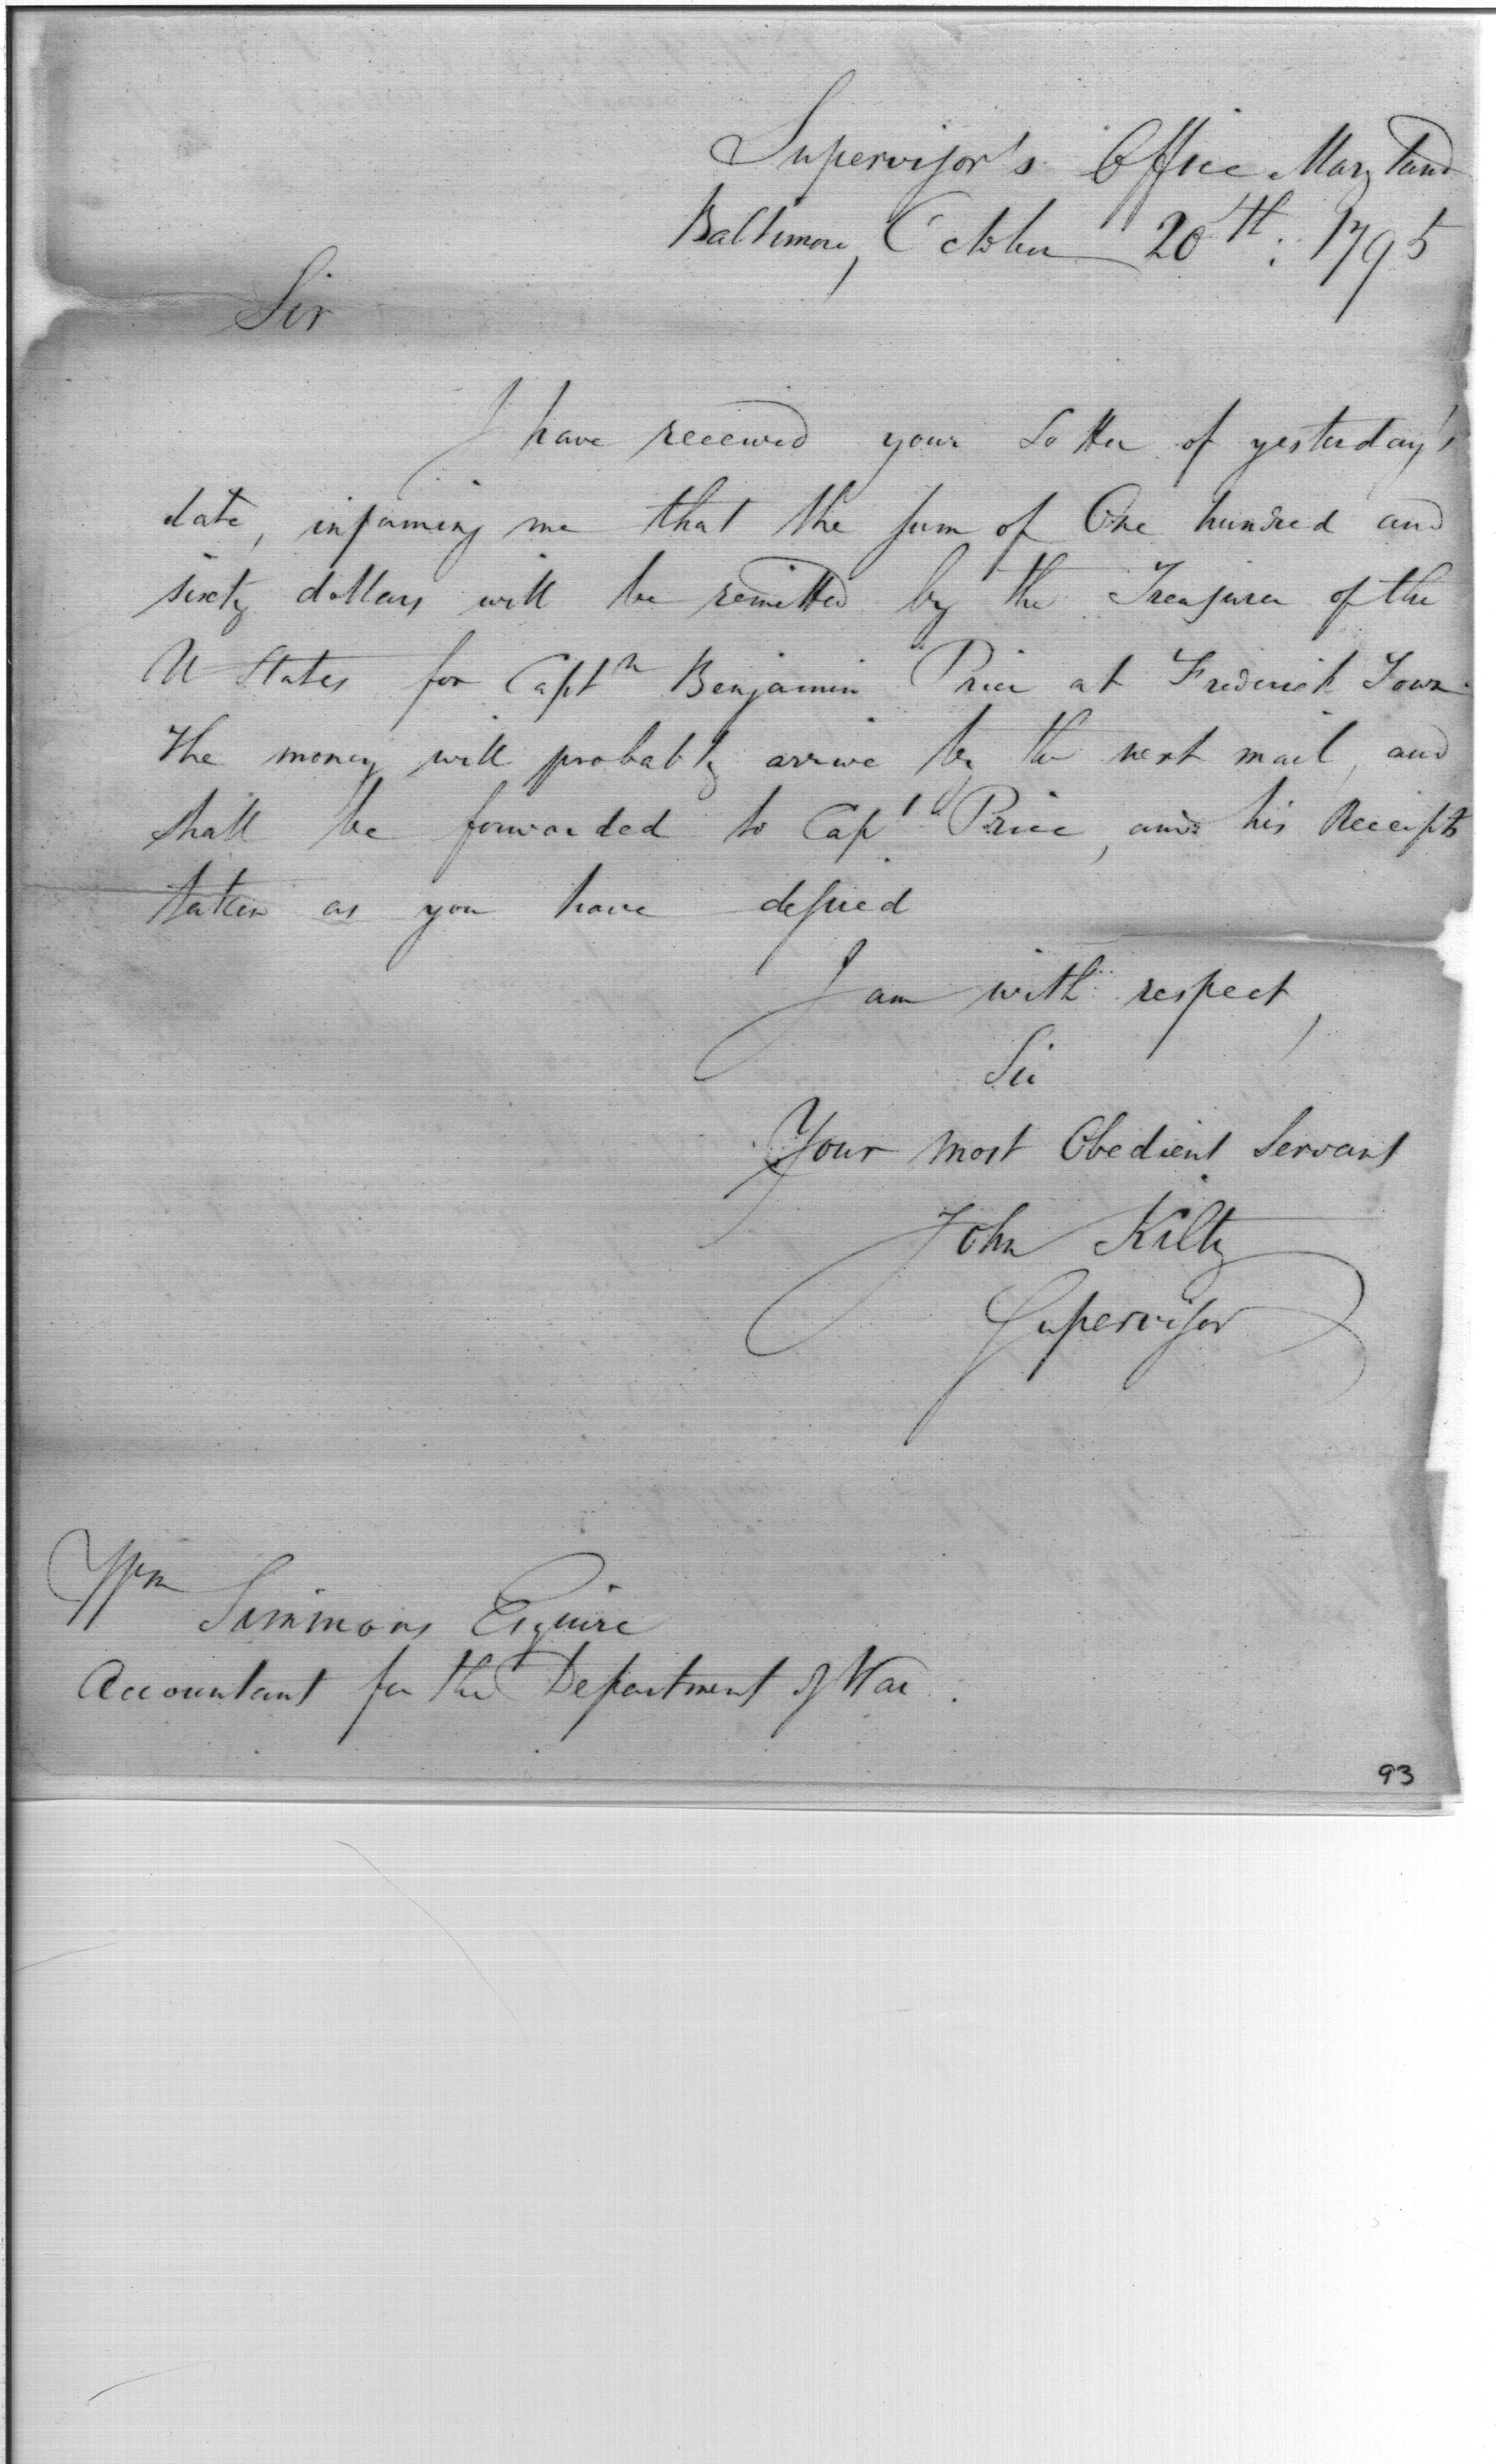 Supervisor's Office Maryland
Baltimore, October 20th: 1795
Sir
I have received your Letter of yesterday's
date, informing me that the sum of One hundred and
sixty dollars will be remitted by the Treasurer of the
U States for Captn Benjamin Price at Frederick Town
The money will probably arrive by the next mail, and
shall be forwarded to Capt Price, and his Receipts
taken as you have desired
I am with respect,
Sir
Your most Obedient Servant
John Kilty
Supervisor
Wm Simmons Esquire
Accountant for the Department of War.
93